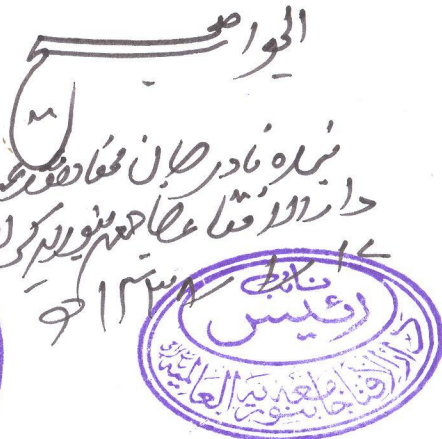 الجواب صحیح
بندہ نادر جان عفا اللہ عنہ
دارالافتاء جامعہ بنوریہ کراچی
۱۴۳۸ھ
نائب
رئیس
دارالافتاء جامعہ بنوریہ العالمیہ